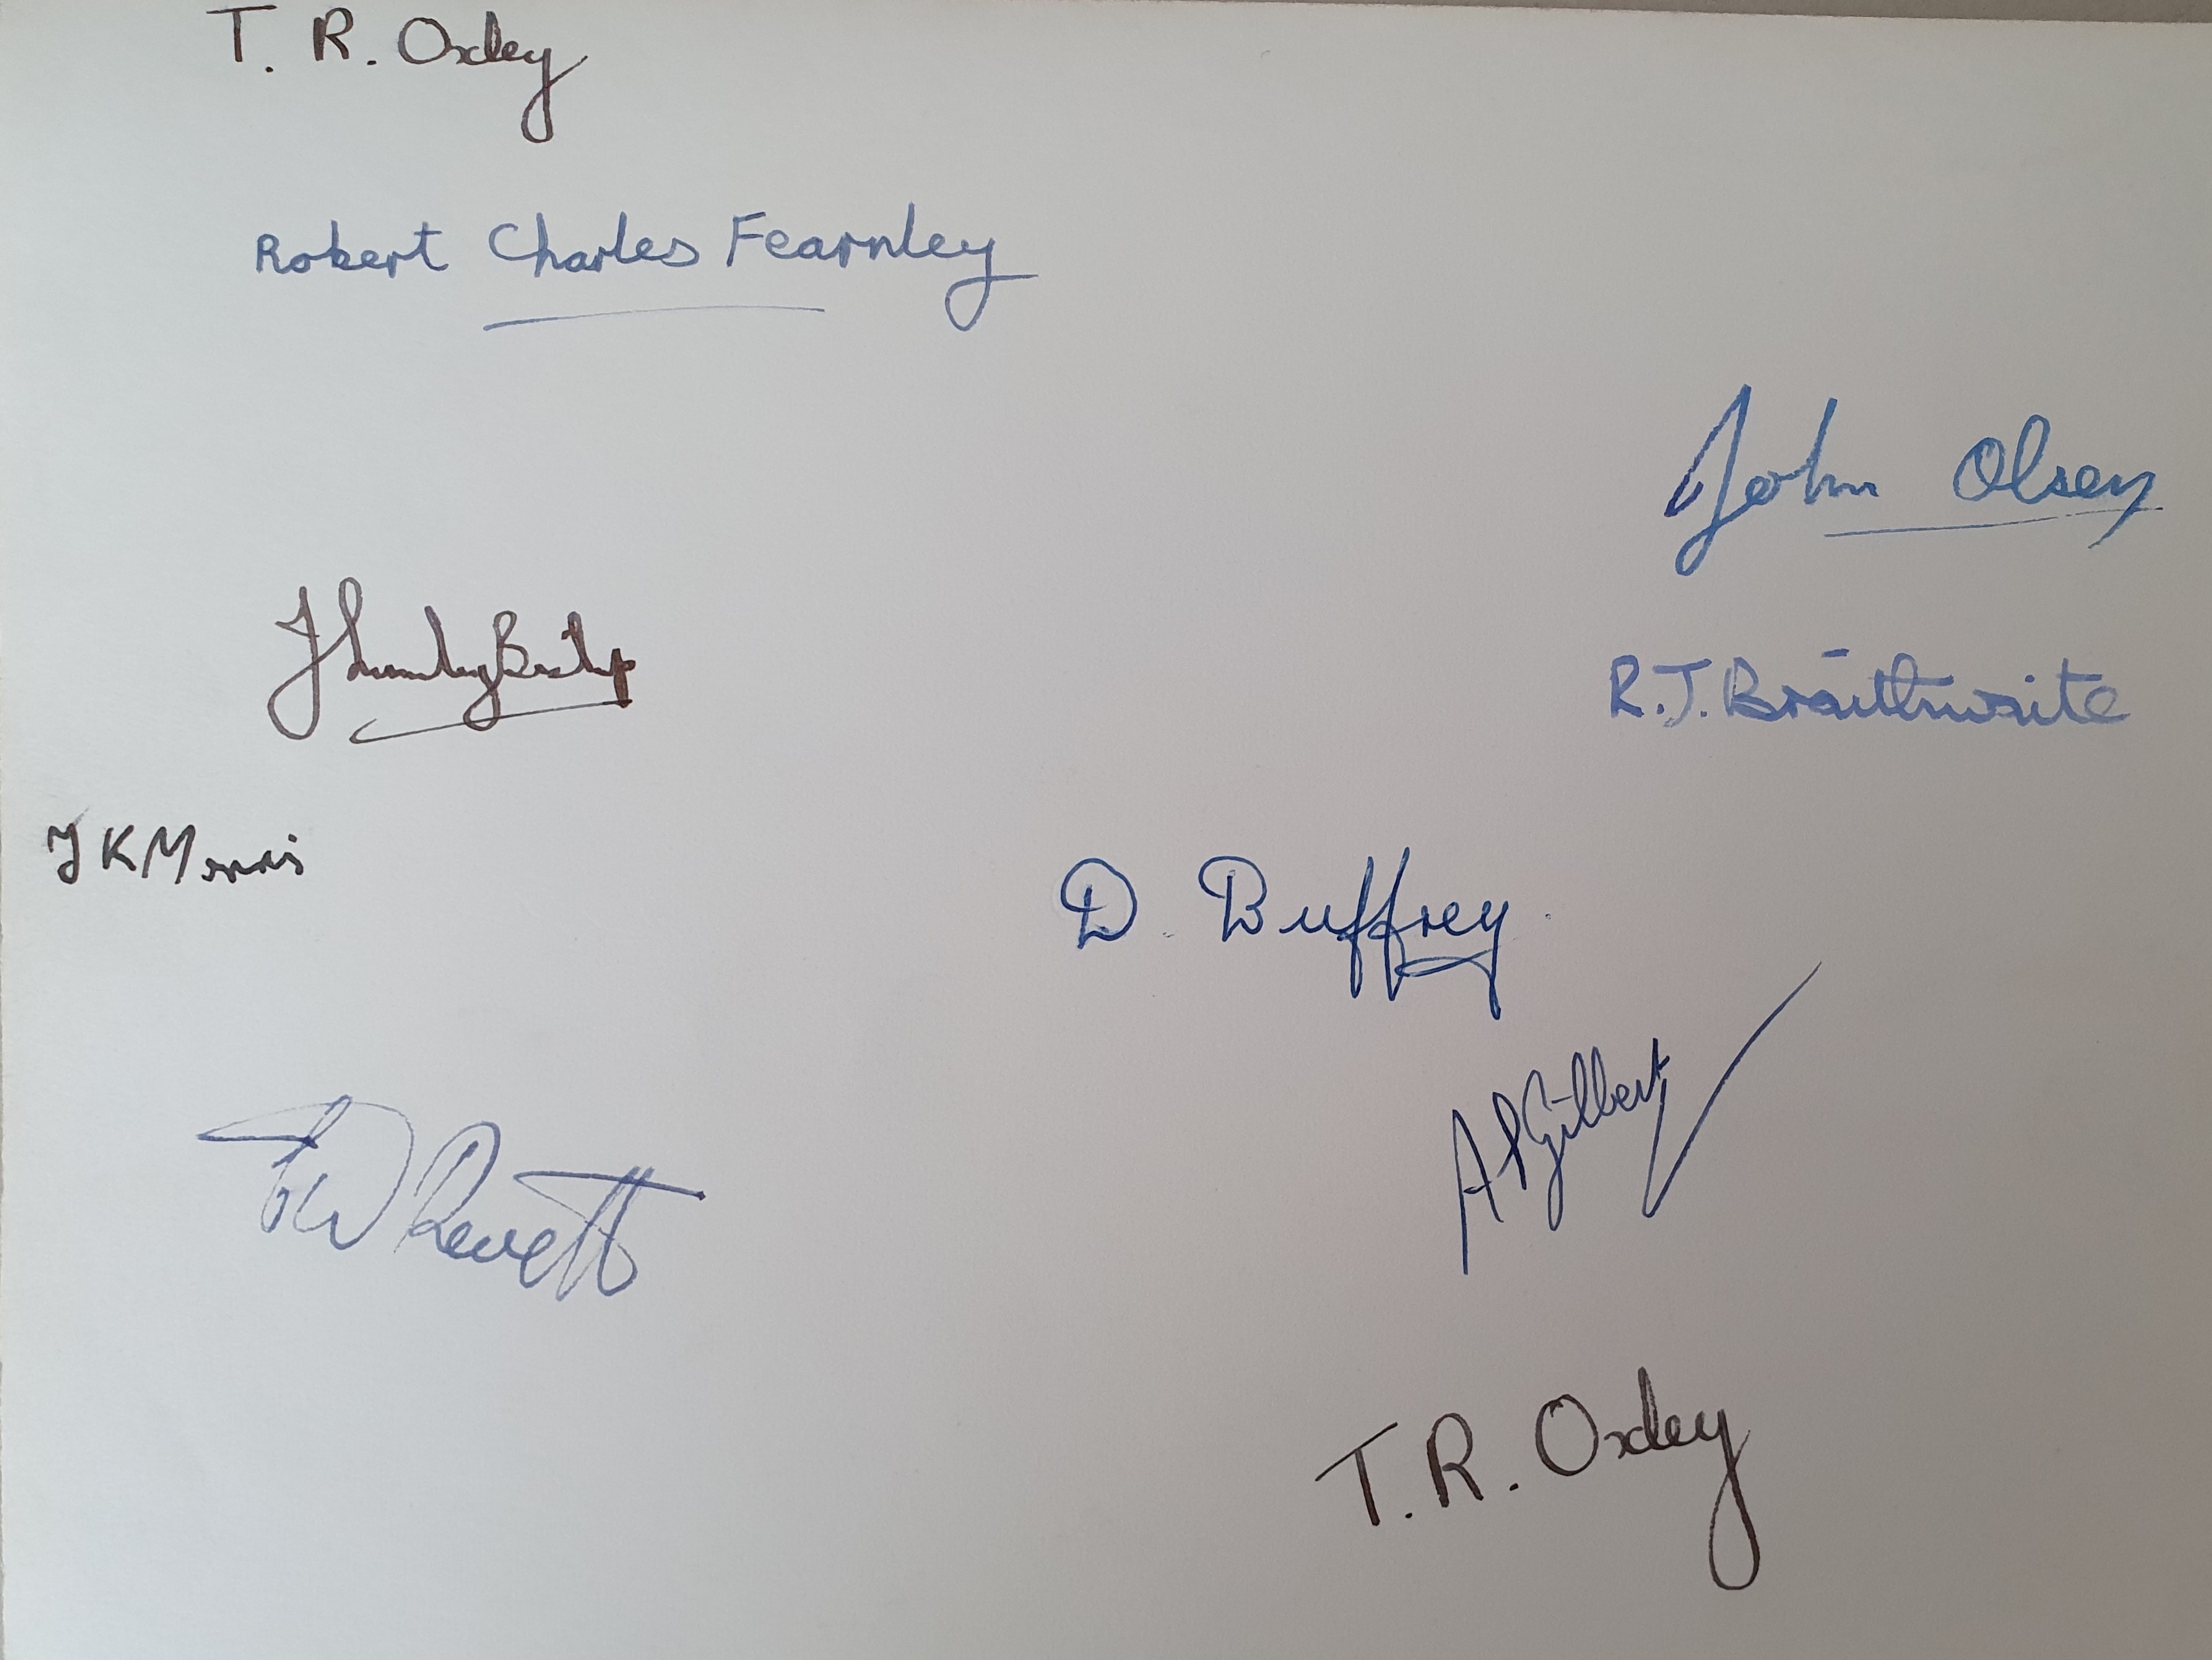 T. R. Oxley
Robert Charles Fearnley
John Olsen
R.J. Braithwaite
J K Morris
D. Buffrey
A P Gilbert
W Revett
T. R. Oxley